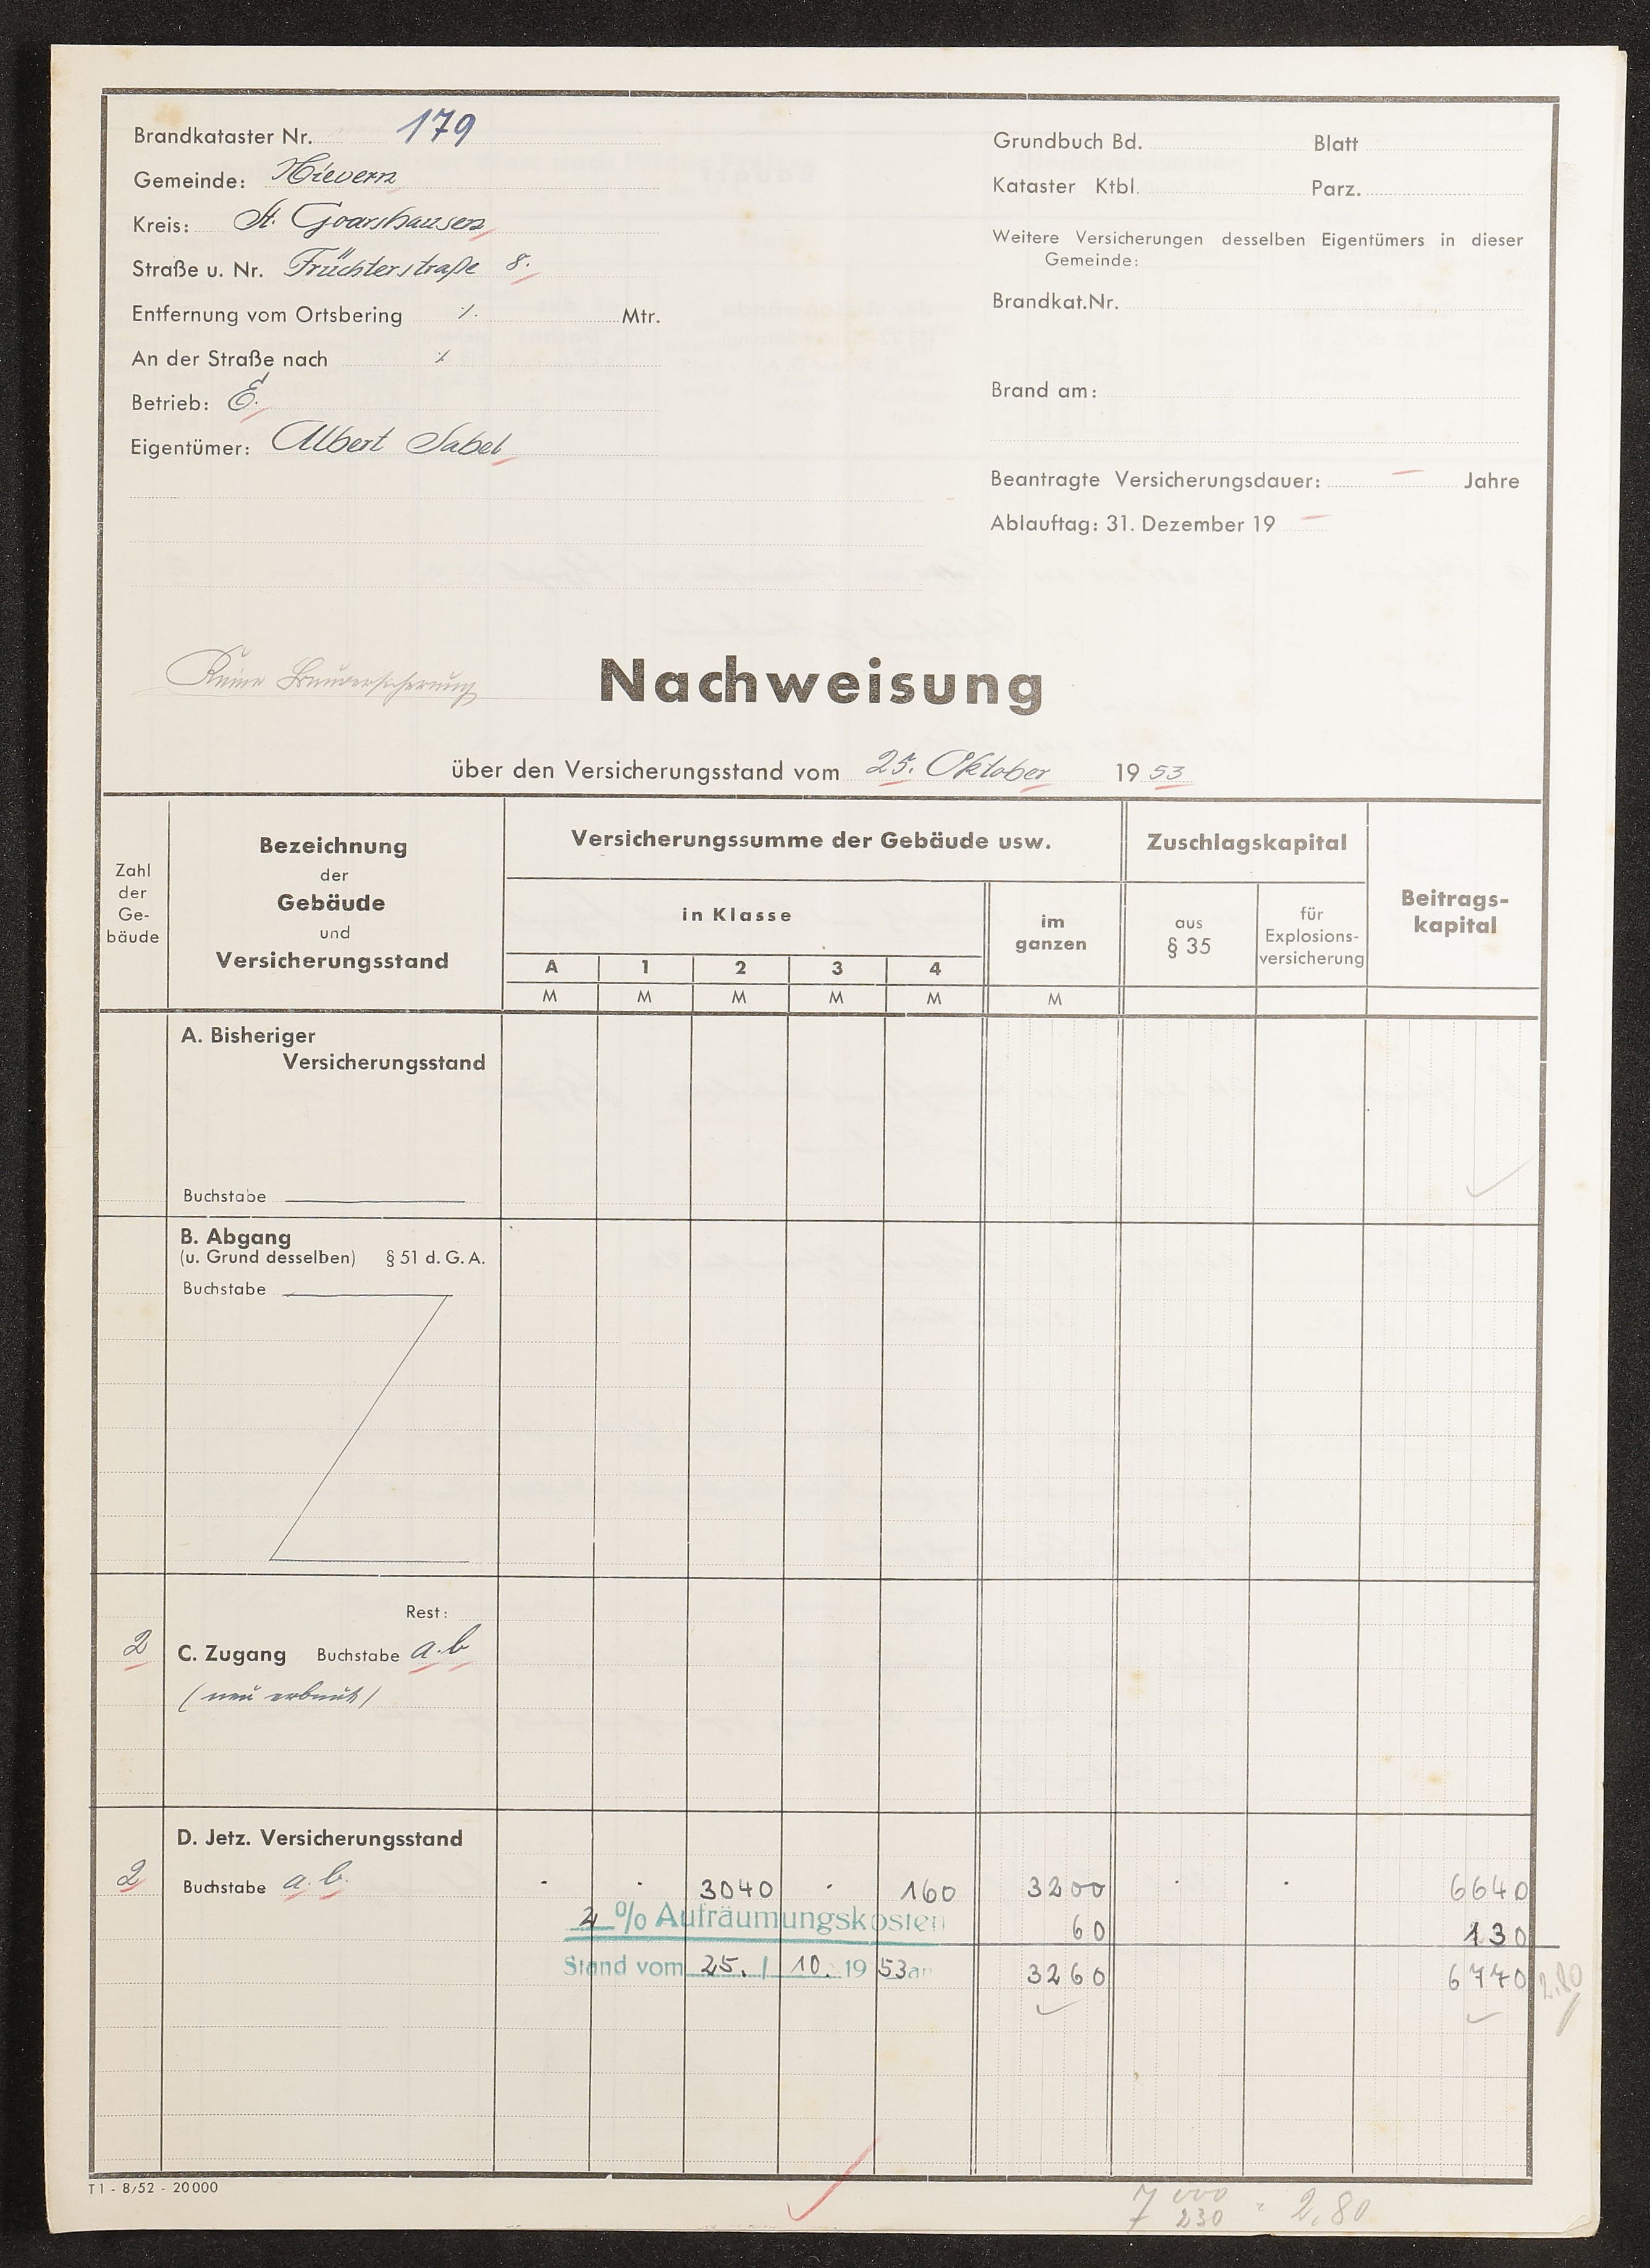 Brandkataster Nr. 179
Gemeinde: Nievern
Kreis: St. Goarshausen
Straße u. Nr. Früchterstraße 8.
Entfernung vom Ortsbering ⁒ Mtr.
An der Straße nach ⁒
Betrieb: E.
Eigentümer: Albert Sabel
Grundbuch Bd. Blatt
Kataster Ktbl. Parz.
Weitere Versicherungen desselben Eigentümers in dieser
Gemeinde:
Brandkat.Nr.
Brand am:
Beantragte Versicherungsdauer: — Jahre
Ablauftag: 31. Dezember 19 —
Keine Bauversicherung
Nachweisung
über den Versicherungsstand vom 25. Oktober 1953
Zahl
der
Ge-
bäude
Bezeichnung
der
Gebäude
und
Versicherungsstand
Versicherungssumme der Gebäude usw.
in Klasse
A 1 2 3 4
M M M M M
im
ganzen
M
Zuschlagskapital
aus
§ 35
für
Explosions-
versicherung
Beitrags-
kapital
A. Bisheriger
Versicherungsstand
Buchstabe
B. Abgang
(u. Grund desselben) § 51 d. G. A.
Buchstabe
Rest:
2 C. Zugang Buchstabe a. b
(neu erbaut)
D. Jetz. Versicherungsstand
2 Buchstabe a. b. · · 3040 · 160 3200 · · 6640
2 % Aufräumungskosten 60 130
Stand vom 25. / 10. 19 53 an 3260 6770 2.80
T 1 - 8/52 - 20000
7000 = 2,80
230